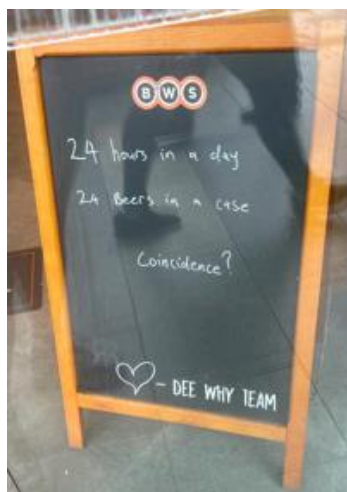 BWS
24 hours in a day
24 Beers in a case
Coincidence?
♡ - DEE WHY TEAM